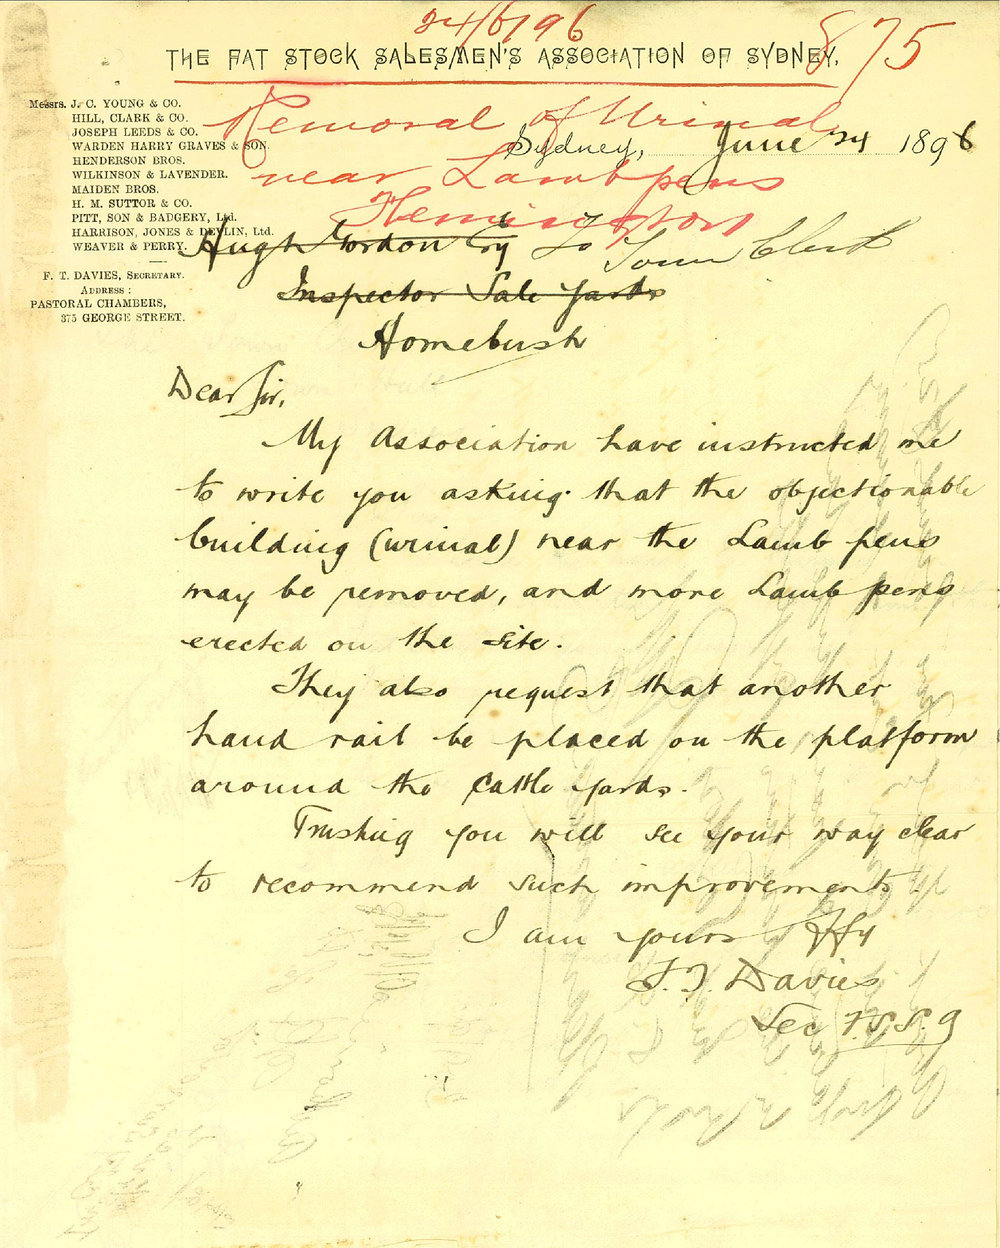 24/6/96
875
THE FAT STOCK SALESMEN'S ASSOCIATION OF SYDNEY.
Messrs. J. C. YOUNG & CO.
HILL, CLARK & CO.
JOSEPH LEEDS & CO.
WARDEN HARRY GRAVES & SON.
HENDERSON BROS.
WILKINSON & LAVENDER.
MAIDEN BROS.
H. M. SUTTOR & CO.
PITT, SON & BADGERY, Ltd.
HARRISON, JONES & DEVLIN, Ltd.
WEAVER & PERRY.
F. T. DAVIES, SECRETARY.
ADDRESS :
PASTORAL CHAMBERS,
375 GEORGE STREET.
Removal of Urinal
near Lamb pens
Flemington
Sydney, June 24 1896
Hugh Gordon Esq To Town Clerk
Inspector Sale Yards
Homebush
Dear Sir,
My Association have instructed me
to write you asking that the objectionable
building (urinal) near the Lamb pens
may be removed, and more Lamb pens
erected on the site.
They also request that another
hand rail be placed on the platform
around the Cattle yards.
Trusting you will see your way clear
to recommend such improvements.
I am yours ffy
F. T. Davies
Sec F.S.S.A